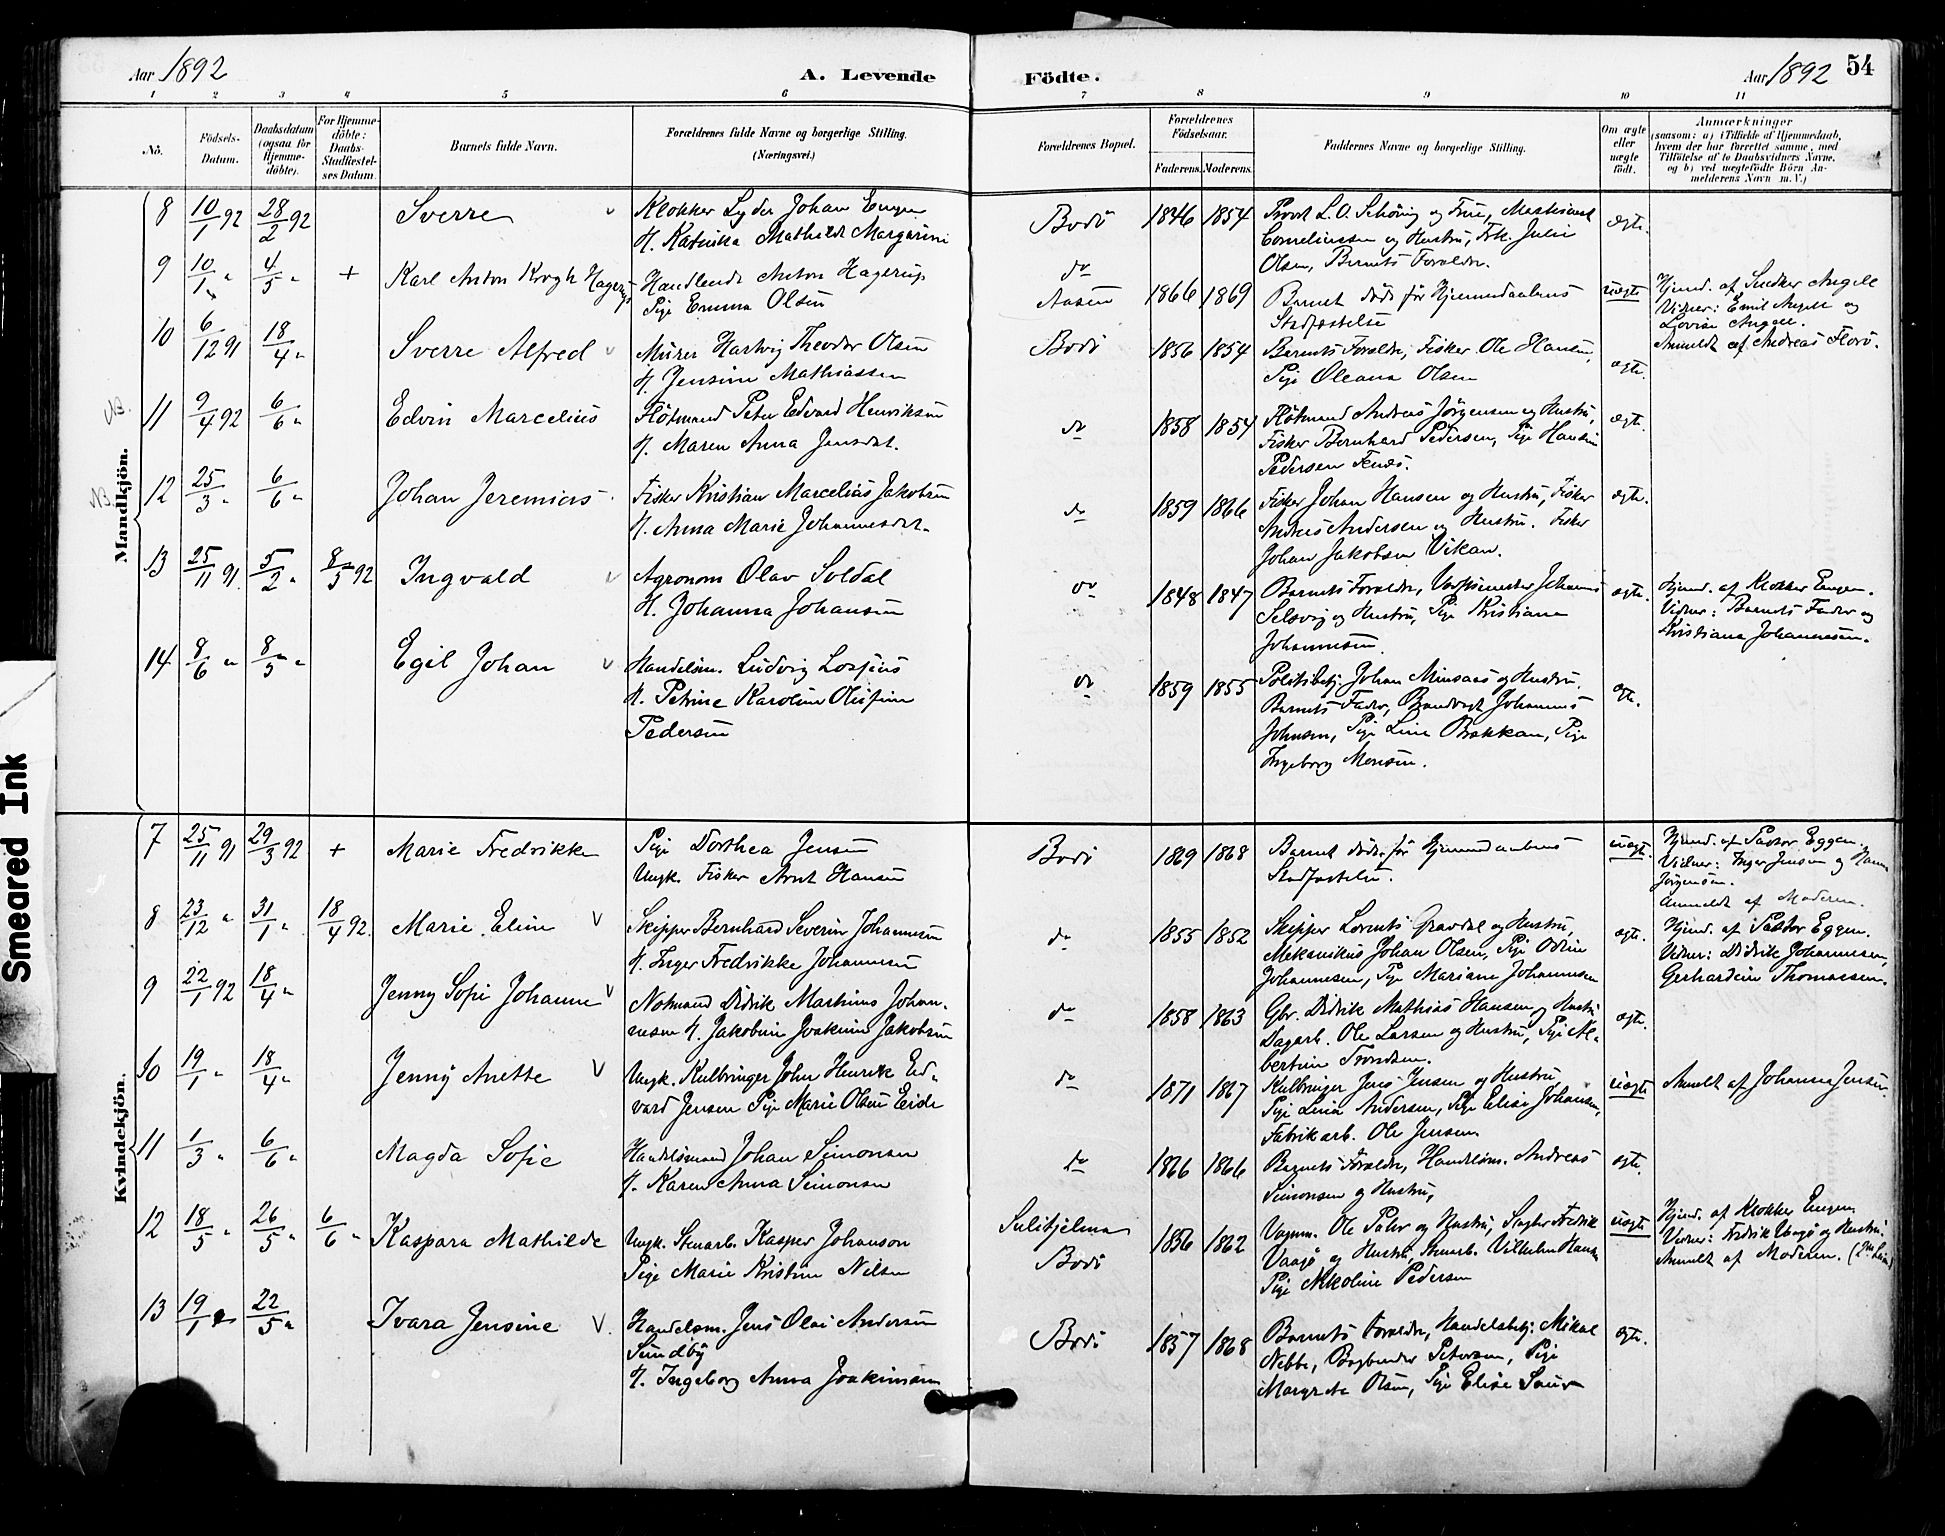 Aar 1892
A. Levende
Födte.
Aar 1892
54
1 2 3 4 5 6 7 8 9 10 11
Nô.
Födsels-Datum.
Daabsdatum (ogsaa for Hjemme-döbte).
For Hjemme-döbte: Daabs-Stadfæstel-ses Datum.
Barnets fulde Navn.
Forældrenes fulde Navne og borgerlige Stilling.
(Næringsvei.)
Forældrenes Bopæl.
Forældrenes Födselsaar.
Faderens. Moderens.
Faddernes Navne og borgerlige Stilling.
Om ægte eller uægte födt.
Anmærkninger
(saasom: a) i Tilfælde af Hjemmedaab, hvem der har forrettet samme, med Tilföielse af to Daabsvidners Navne, og b) ved uægtefödte Börn An-melderens Navn m. V.)
Mandkjön.
8 10/1 92 28/2 92 Sverre
Klokker Lyder Johan Engen
H. Katinka Mathilde Margarine
Bodö 1846 1854
Provst L. O. Schöning og Frue, Maskinist
Corneliussen og Hustru, Frk. Julie
Olsen, Barnets Forældre.
ægte.
9 10/1 " 4/5 " + Karl Anton Krogh Hagerup
Handlende Anton Hagerup
Pige Emma Olsen
do
Aasen 1866 1869
Barnet döde för Hjemmedaabens
Stadfæstelse
uægte
Hjemd. af Snedker Angell
Vidner: Emil Angell og
Lovise Angell.
Anmeldt af Andreas Florö.
10 6/12 91 18/4 " Sverre Alfred
Murer Hartvig Theodor Olsen
H. Jensine Mathiassen
Bodö 1856 1854
Barnets Forældre, Fisker Ole Hansen,
Pige Oleana Olsen
ægte.
NB.
11 9/4 92 6/6 " Edvin Marcelius
Flötmand Peter Edvard Henriksen
H. Maren Anna Jensdat.
do 1858 1854
Flötmand Andreas Jörgensen og Hustru,
Fisker Bernhard Pedersen, Pige Hansine
Pedersen Fenes.
ægte.
NB.
12 25/3 " 6/6 " Johan Jeremias
Fisker Kristian Marcelius Jakobsen
H. Anna Marie Johannesdat.
do 1859 1866
Fisker Johan Hansen og Hustru, Fisker
Andreas Andersen og Hustru. Fisker
Johan Jakobsen Vikan.
ægte.
13 25/11 91 5/2 " 8/5 92 Ingvald
Agronom Olav Soldal
H. Johanna Johansen
do 1848 1847
Barnets Forældre, Johannes
Selsvig og Hustru, Pige Kristiane
Johannesen
ægte.
Hjemd. af Klokker Engen.
Vidner: Barnets Fader og
Kristiana Johannesen.
14 8/6 " 8/5 " Egil Johan
Handelsm. Ludvig Lossius
H. Petrine Karoline Olefine
Pedersen
do 1859 1855
Politibetj. Johan Minsaas og Hustru,
Barnets Fader, Brandvagt Johannes
Johnsen, Pige Line Bakkan, Pige
Ingeborg Monsen.
ægte.
Kvindekjön.
7 25/11 91 29/3 92 + Marie Fredrikke
Pige Dorthea Jensen
Ungk. Fisker Arnt Hansen
Bodö 1869 1868
Barnet döde för Hjemmedaabens
Stadfæstelse.
uægte.
Hjemd. af Pastor Eggen.
Vidner: Inger Jensen og
Jörgensen.
Anmeldt af Moderen.
8 23/12 " 31/1 " 18/4 92. Marie Eline
Skipper Bernhard Severin Johannesen
H. Inger Fredrikke Johannesen
do 1855 1852
Skipper Lorents Gravdal og Hustru,
Mekanikus Johan Olsen, Pige Odine
Johannesen, Pige Mariane Johannesen
ægte.
Hjemd. af Pastor Eggen.
Vidner: Didrik Johannesen,
Gerhardine Thomassen.
9 22/1 92 18/4 " Jenny Sofie Johanne
Notmand Didrik Martinus Johan-
nesen H. Jakobine Joakime Jakobsen
do 1858 1863
Gbr. Didrik Mathias Hansen og Hustru
Dagarb. Ole Larsen og Hustru, Pige Al-
bertine Trondsen.
ægte.
10 19/1 " 18/4 " Jenny Anette
Ungk. Kulbringer John Henrik Ed-
vard Jensen Pige Marie Olsen Eide
do 1871 1867
Kulbringer Jens Jensen og Hustru
Pige Lina Andersen, Pige Elise Johansen,
Fabrikarb. Ole Jensen
uægte
Anmeldt af Johanna Jensen.
11 1/3 " 6/6 " Magda Sofie
Handelsmand Johan Simonsen
H. Karen Anna Simonsen
do 1866 1866
Barnets Forældre, Handelsm. Andreas
Simonsen og Hustru,
ægte.
12 18/5 " 26/5 " 6/6 " Kaspara Mathilde
Ungk. Stenarb. Kasper Johanson
Pige Marie Kristine Nilsen
Sulitjelma
Bodö
1856 1862
Vognm. Ole Palm og Hustru, Slagter Fredrik
Vaagö og Hustru, Stenarb. Vilhelm Hansen
Pige Nikoline Pedersen
uægte
Hjemd. af Klokker Engen.
Vidner: Fredrik Vaagö og Hustru.
Anmeldt af Moderen.
13 19/1 22/5 " Ivara Jensine
Handelsm. Jens Olai Andersen
Sundby
H. Ingeborg Anna Joakimsen
Bodö 1857 1868
Barnets Forældre, Handelsbetj. Mikal
Nebbe, Bogbinder Petersen, Pige
Margrete Olsen, Pige Elise
ægte.
Smeared Ink